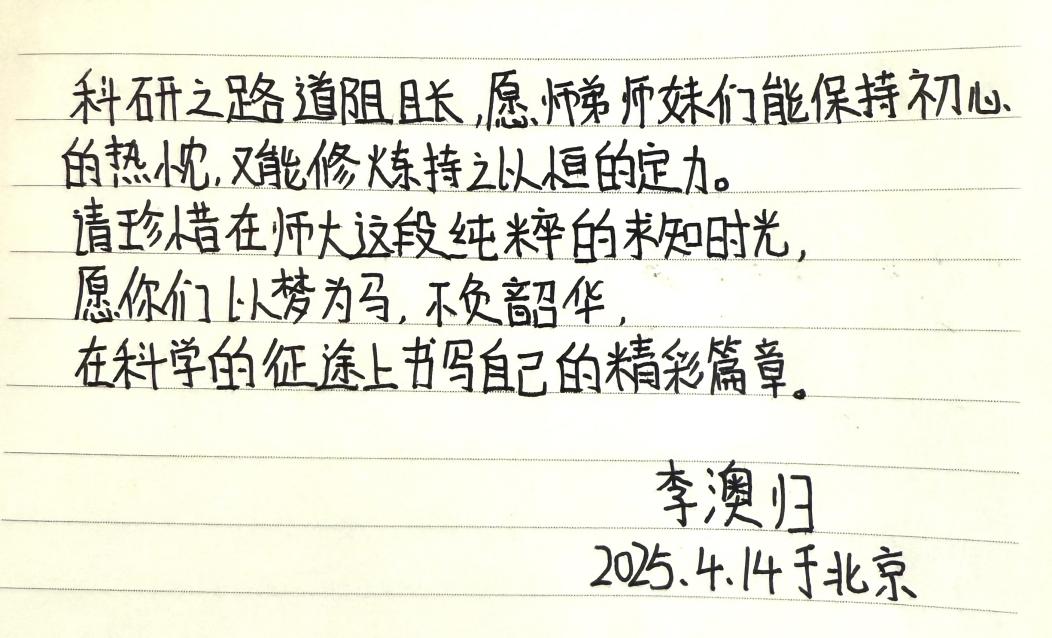 科研之路道阻且长,愿师弟师妹们能保持初心
的热忱,又能修炼持之以恒的定力。
请珍惜在师大这段纯粹的求知时光,
愿你们以梦为马,不负韶华,
在科学的征途上书写自己的精彩篇章。
李澳归
2025.4.14于北京